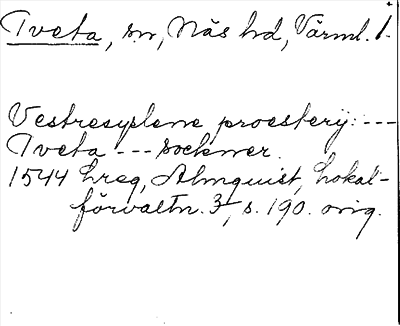 Tveta, sn, Näs hd, Värml. l.
Vestresyslene proesterij: ---
Tveta --- sockner.
1544 hreg, Almquist, Lokal-
förvaltn. 3, s. 190. orig.